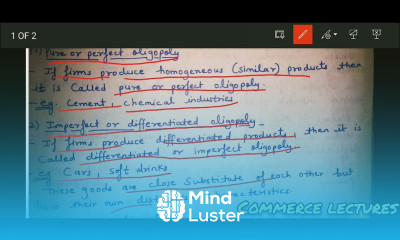 1 OF 2
1) Pure or perfect oligopoly
- If firms produce homogeneous (similar) products then
it is called pure or perfect oligopoly.
- eg. Cement, chemical industries
2) Imperfect or differentiated oligopoly -
- If firms produce differentiated products, then it is
called differentiated or imperfect oligopoly
- eg Cars, soft drinks
These goods are close substitute of each other but
their own
Mind
Luster
COMMERCE LECTURES